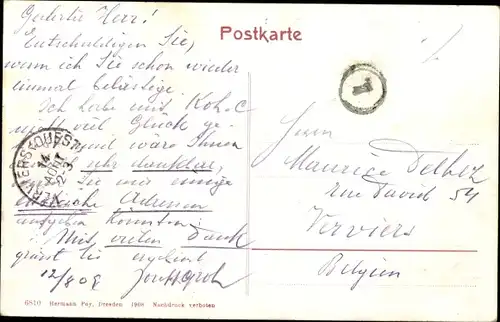 Geehrter Herr!
Entschuldigen Sie,
wenn ich Sie schon wieder
einmal belästige.
Ich habe mit
nicht viel Glück ge-
und wäre Ihnen
sehr dankbar,
Sie mir einige
Adressen
angeben könnten.
Mit vielen Dank
grüsst Sie ergebenst
12/8 08
Postkarte
%
T
VERVIERS (OUEST)
Herrn
Maurice Delhez
rue David 54
Verviers
Belgien
6810 Hermann Poy, Dresden 1908 Nachdruck verboten